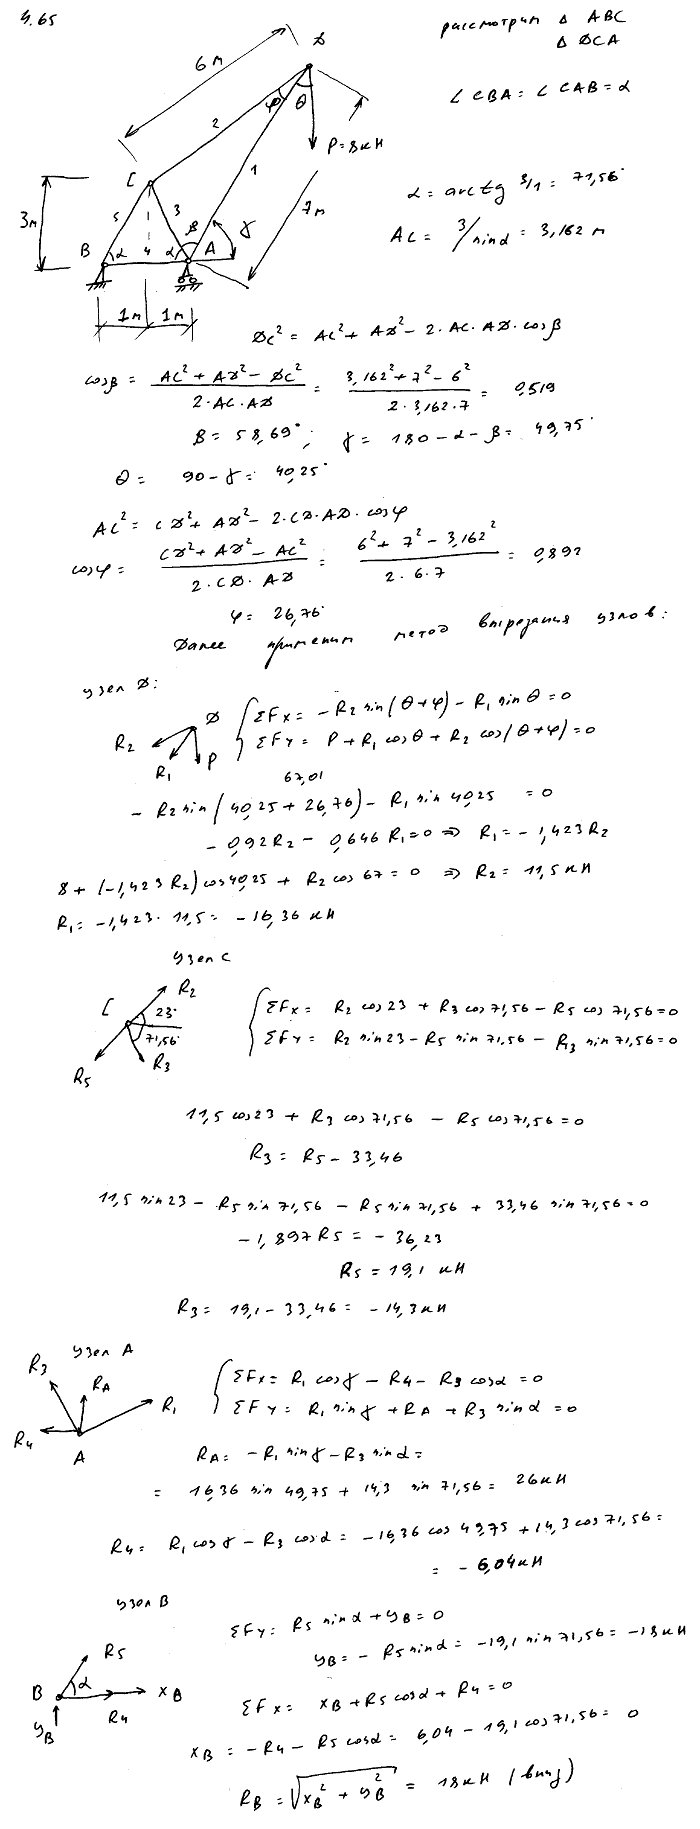 4.65
рассмотрим Δ ABC
Δ DCA
∠ CBA = ∠ CAB = α
α = arctg 3/1 = 71,56°
AC = 3/sin α = 3,162 м
6 м
D
φ θ
2
P = 8 кН
1
C
3 м
5 3
7 м
β γ
B α 4 α A
1 м 1 м
DC² = AC² + AD² - 2·AC·AD·cos β
cos β = (AC² + AD² - DC²)/(2·AC·AD) = (3,162² + 7² - 6²)/(2·3,162·7) = 0,519
β = 58,69°; γ = 180 - α - β = 49,75°
θ = 90 - γ = 40,25°
AC² = CD² + AD² - 2·CD·AD·cos φ
cos φ = (CD² + AD² - AC²)/(2·CD·AD) = (6² + 7² - 3,162²)/(2·6·7) = 0,892
φ = 26,76°
Далее применим метод вырезания узлов:
узел D:
D
R₂ R₁ P
ΣFx = -R₂ sin(θ+φ) - R₁ sin θ = 0
ΣFy = P + R₁ cos θ + R₂ cos(θ+φ) = 0
67,01
- R₂ sin(40,25 + 26,76) - R₁ sin 40,25 = 0
- 0,92 R₂ - 0,646 R₁ = 0 ⇒ R₁ = -1,423 R₂
8 + (-1,423 R₂) cos 40,25 + R₂ cos 67 = 0 ⇒ R₂ = 11,5 кН
R₁ = -1,423 · 11,5 = -16,36 кН
узел C
C R₂ 23° 71,56° R₃ R₅
ΣFx = R₂ cos 23 + R₃ cos 71,56 - R₅ cos 71,56 = 0
ΣFy = R₂ sin 23 - R₅ sin 71,56 - R₃ sin 71,56 = 0
11,5 cos 23 + R₃ cos 71,56 - R₅ cos 71,56 = 0
R₃ = R₅ - 33,46
11,5 sin 23 - R₅ sin 71,56 - R₅ sin 71,56 + 33,46 sin 71,56 = 0
-1,897 R₅ = -36,23
R₅ = 19,1 кН
R₃ = 19,1 - 33,46 = -14,3 кН
узел A
R₃ R_A R₁ R₄ A
ΣFx = R₁ cos γ - R₄ - R₃ cos α = 0
ΣFy = R₁ sin γ + R_A + R₃ sin α = 0
R_A = -R₁ sin γ - R₃ sin α =
= 16,36 sin 49,75 + 14,3 sin 71,56 = 26 кН
R₄ = R₁ cos γ - R₃ cos α = -16,36 cos 49,75 + 14,3 cos 71,56 =
= -6,04 кН
узел B
R₅ B α X_B R₄ y_B
ΣFy = R₅ sin α + y_B = 0
y_B = -R₅ sin α = -19,1 sin 71,56 = -18 кН
ΣFx = X_B + R₅ cos α + R₄ = 0
X_B = -R₄ - R₅ cos α = 6,04 - 19,1 cos 71,56 = 0
R_B = √(X_B² + y_B²) = 18 кН (вниз)